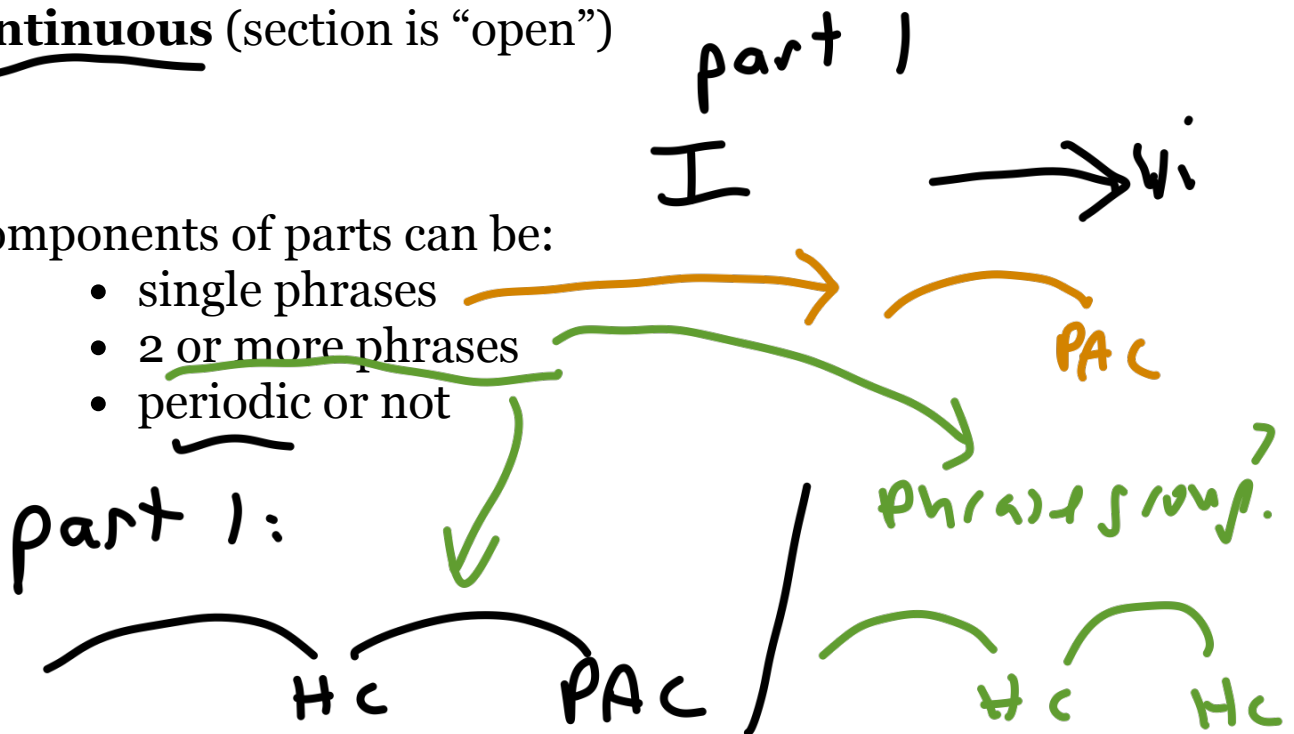 ntinuous (section is “open”)
part 1
I vi
omponents of parts can be:
• single phrases
PAC
• 2 or more phrases
• periodic or not
phrase group?
part 1:
HC PAC / HC HC